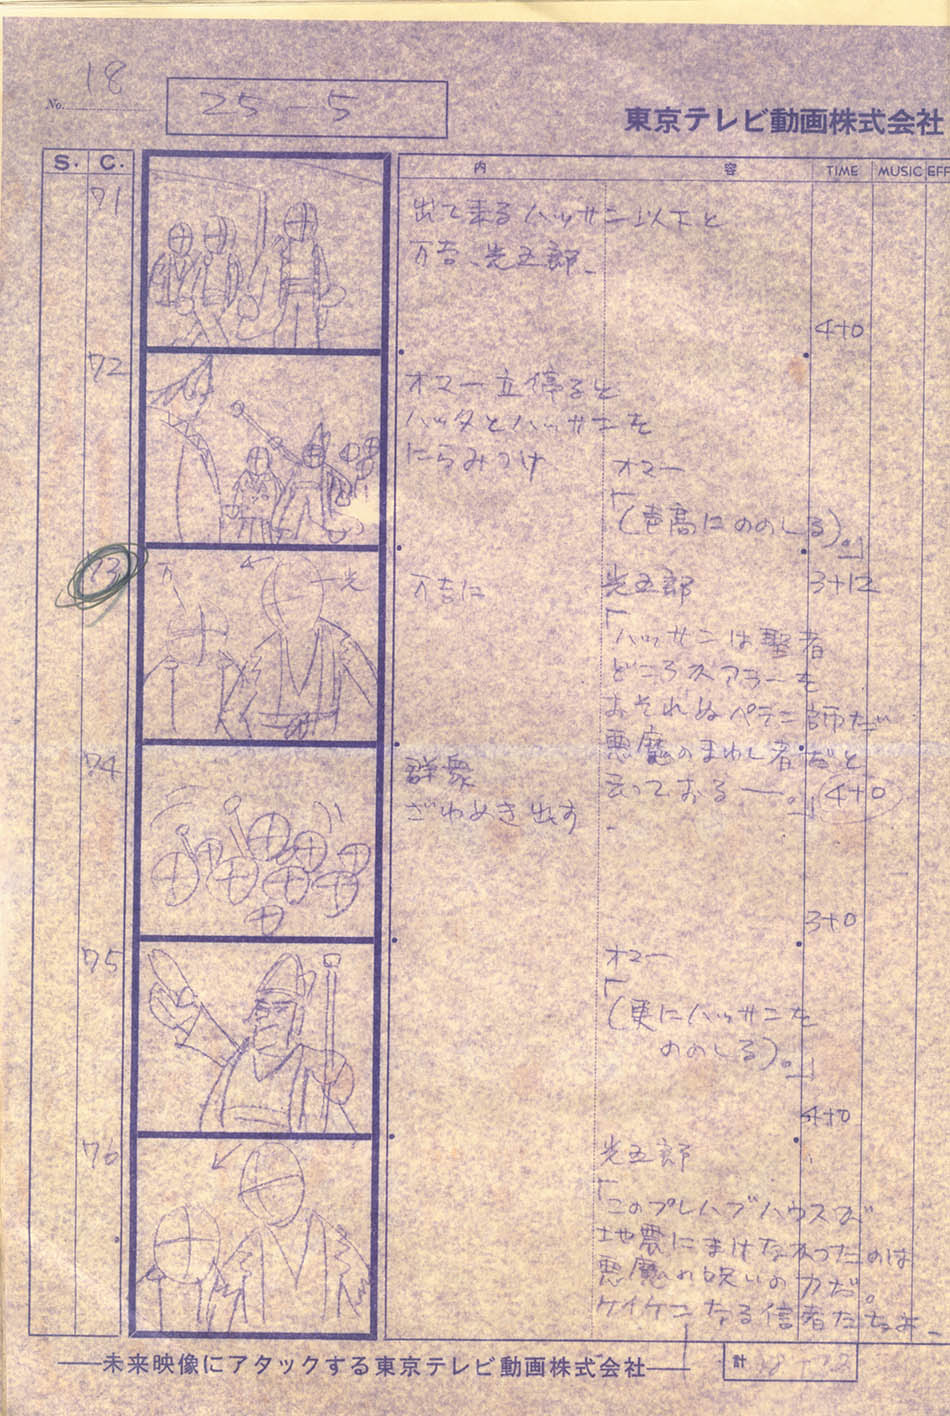 No. 18
25-5
東京テレビ動画株式会社
S. C. 内 容 TIME MUSIC EFF
71
出て来るハッサン以下と
万吉、光五郎、
4+0
72
オマー立停ると
ハッタとハッサンを
にらみつけ
オマー
「
(声高にののしる)。」
3+12
73
万
光
万吉に
光五郎
「
ハッサンは聖者
どころスアラーを
おそれぬペテン師だ
悪魔のまわし者だと
云っておるー。」
4+0
74
群衆
ざわめき出す
3+0
75
オマー
「
(更にハッサンを
ののしる)。」
4+0
76
光五郎
「
このプレハブハウスが
地震にまけなかったのは
悪魔の呪いの力だ。
ケイケンなる信者たちよ、
——未来映像にアタックする東京テレビ動画株式会社——
計